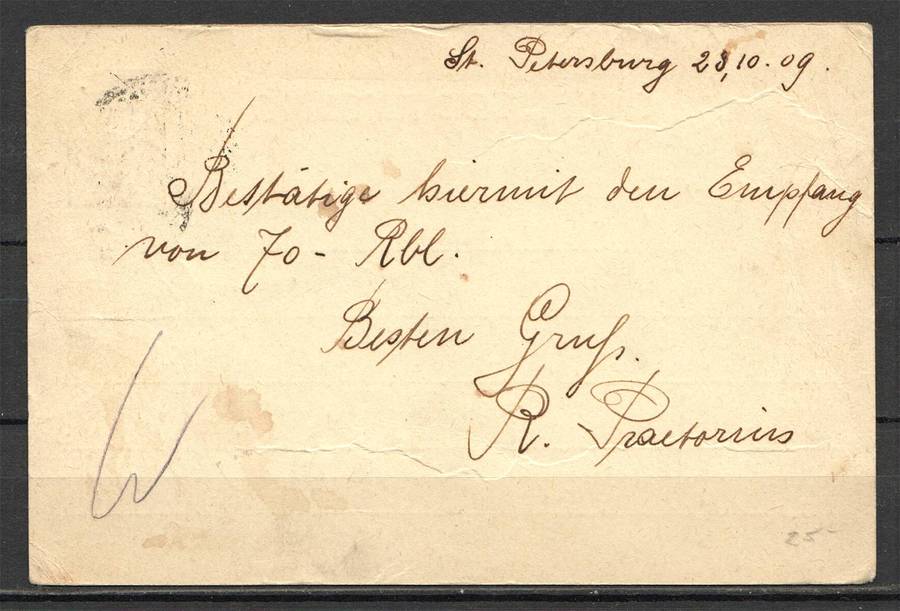 St. Petersburg 23,10.09.
Bestätige hiermit den Empfang
von 70- Rbl.
Besten Gruß.
R. Praetorius
25-